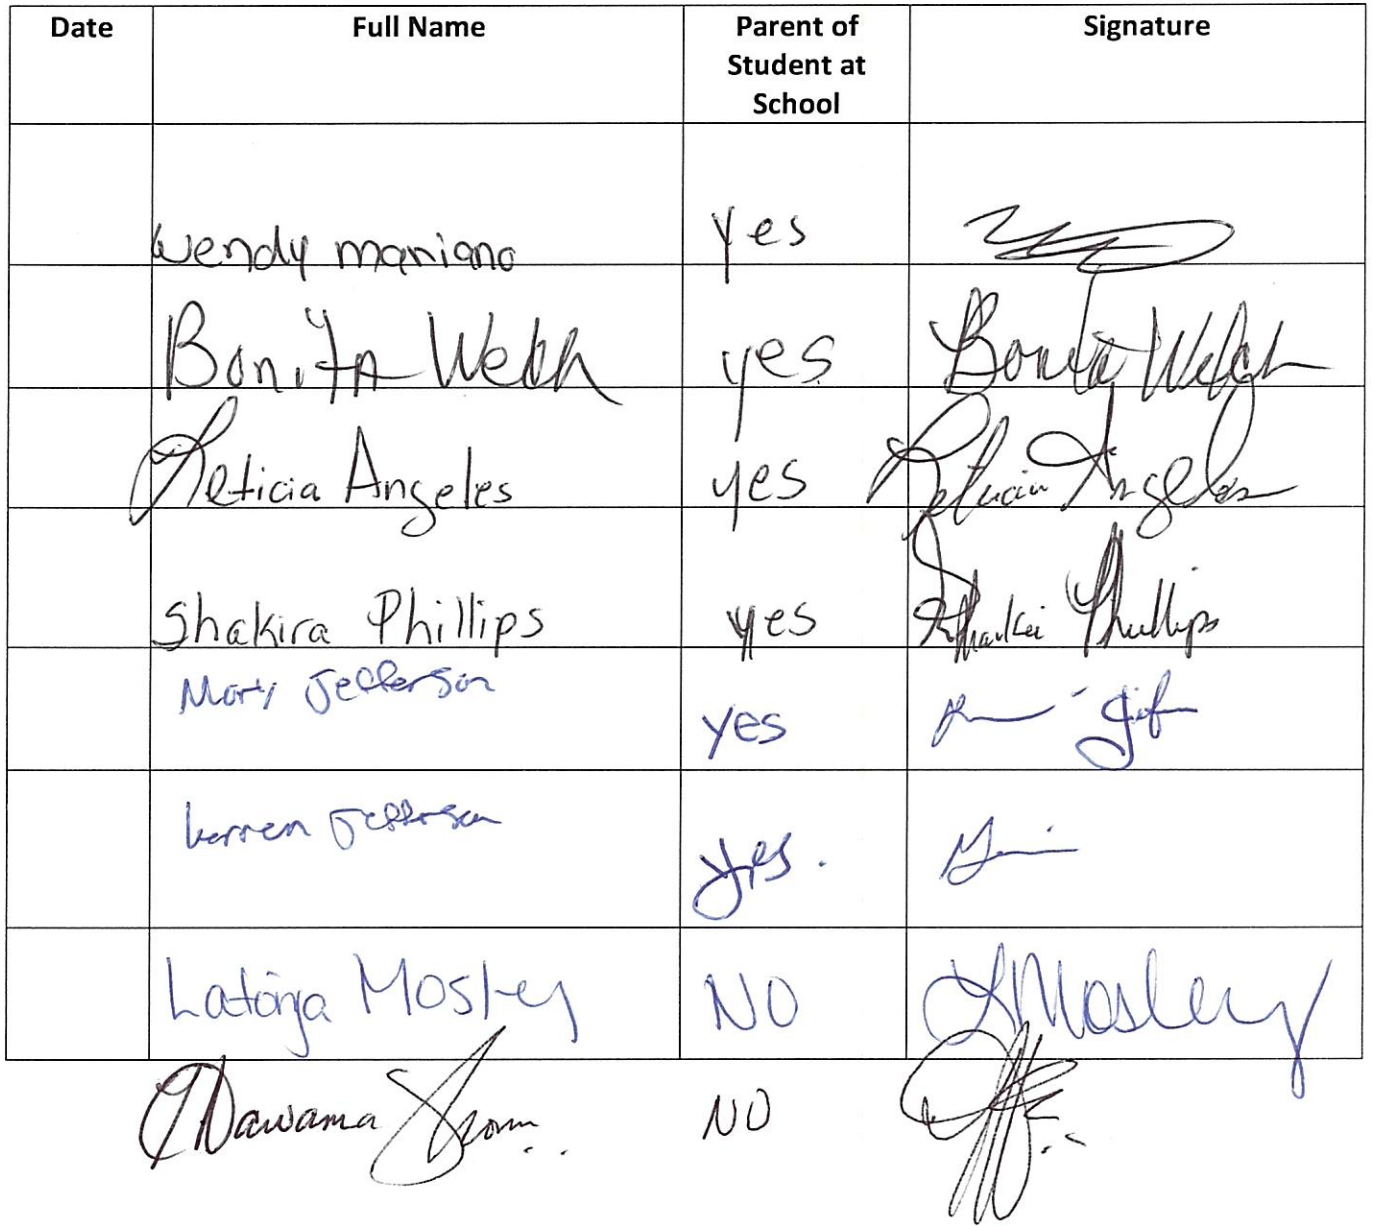 Date Full Name Parent of Student at School Signature
Wendy mariano yes
Bonita Welch yes Bonita Welch
Leticia Angeles yes Leticia Angeles
Shakira Phillips yes Phillips
Mary Jefferson yes
Jefferson yes.
Latonja Mosley NO L Mosley
NO